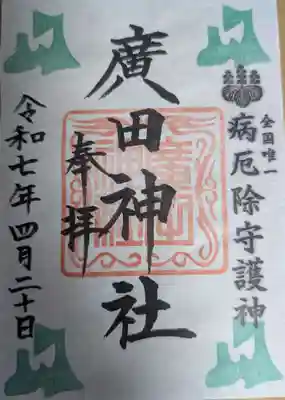 全国唯一
病厄除守護神
廣田神社
奉拝
令和七年四月二十日